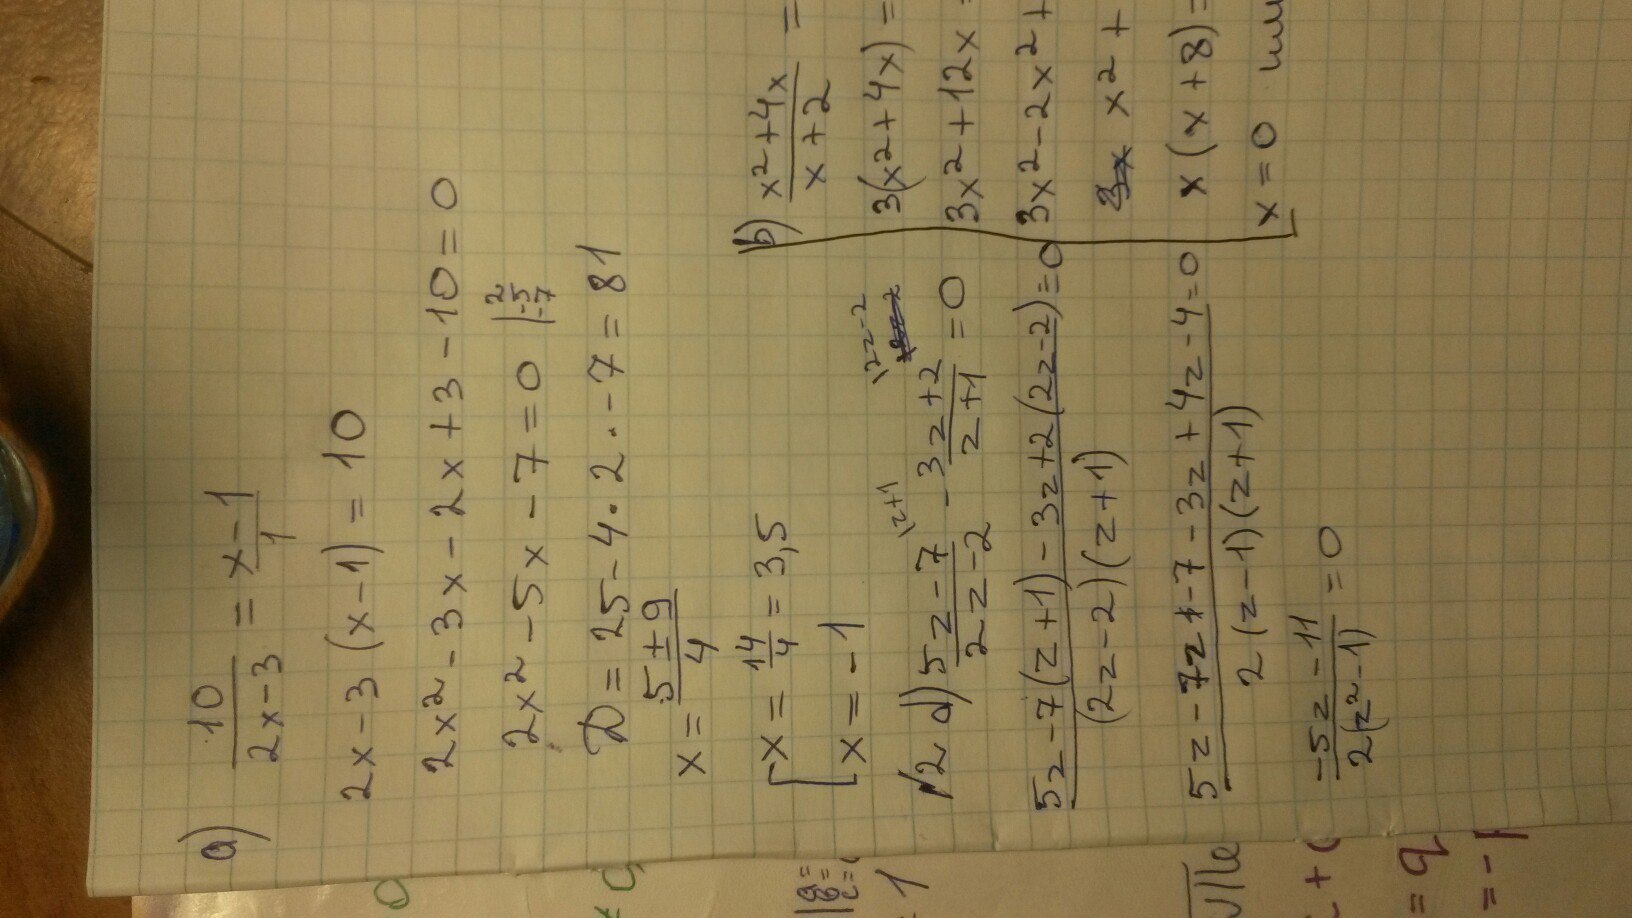 a) 10/(2x-3) = (x-1)/1
2x-3(x-1) = 10
2x² - 3x - 2x + 3 - 10 = 0
2x² - 5x - 7 = 0 | 2 -5 -7
D = 25 - 4 · 2 · -7 = 81
x = (5 ± 9)/4
[ x = 14/4 = 3,5
[ x = -1
№2 a) (5z-7)/(2z-2) |z+1 - (3z+2)/(z+1) |2z-2 = 0
(5z-7(z+1) - 3z+2(2z-2))/((2z-2)(z+1)) = 0
(5z - 7z - 7 - 3z + 4z - 4)/(2(z-1)(z+1)) = 0
(-5z - 11)/(2(z²-1)) = 0
b) (x²+4x)/(x+2) =
3(x²+4x) =
3x²+12x =
3x²-2x²+
x²+
x(x+8) =
x=0 или